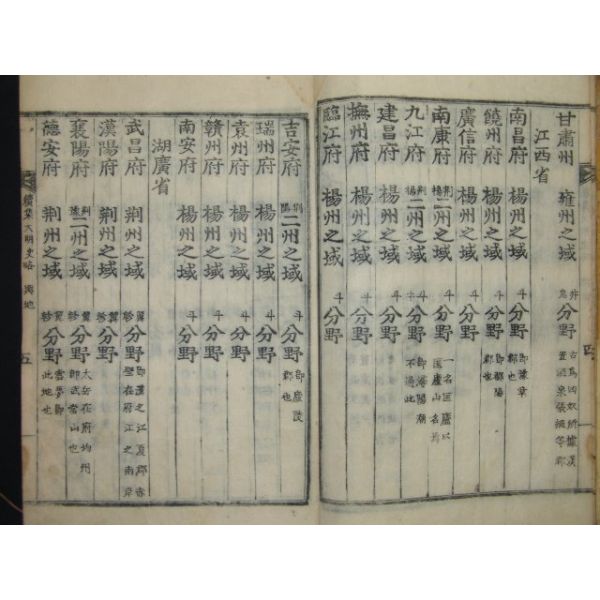 甘肅州 雍州之域 井鬼 分野 古爲凶奴所據漢置酒泉張掖等郡
江西省
南昌府 楊州之域 斗 分野 即豫章郡也
饒州府 楊州之域 斗 分野 即鄱陽郡也
廣信府 楊州之域 斗 分野
南康府 荊楊 二州之域 斗 分野 一名匡廬以匡廬山名焉
九江府 荊楊 二州之域 斗 分野 即潯陽潮不過此
建昌府 楊州之域 斗 分野
撫州府 楊州之域 斗 分野
臨江府 楊州之域 斗 分野
吉安府 荊楊 二州之域 斗 分野 即廬陵郡也
瑞州府 楊州之域 斗 分野
袁州府 楊州之域 斗 分野
贛州府 楊州之域 斗 分野
南安府 楊州之域 斗 分野
湖廣省
武昌府 荆州之域 翼軫 分野 即漢之江夏郡 壁在府江之南岸
漢陽府 荆州之域 翼軫 分野
襄陽府 荆豫 二州之域 翼軫 分野 大岳在府均州即武當山也
德安府 荆州之域 翼軫 分野 雲夢即此地也
續集大明史略 輿地 五